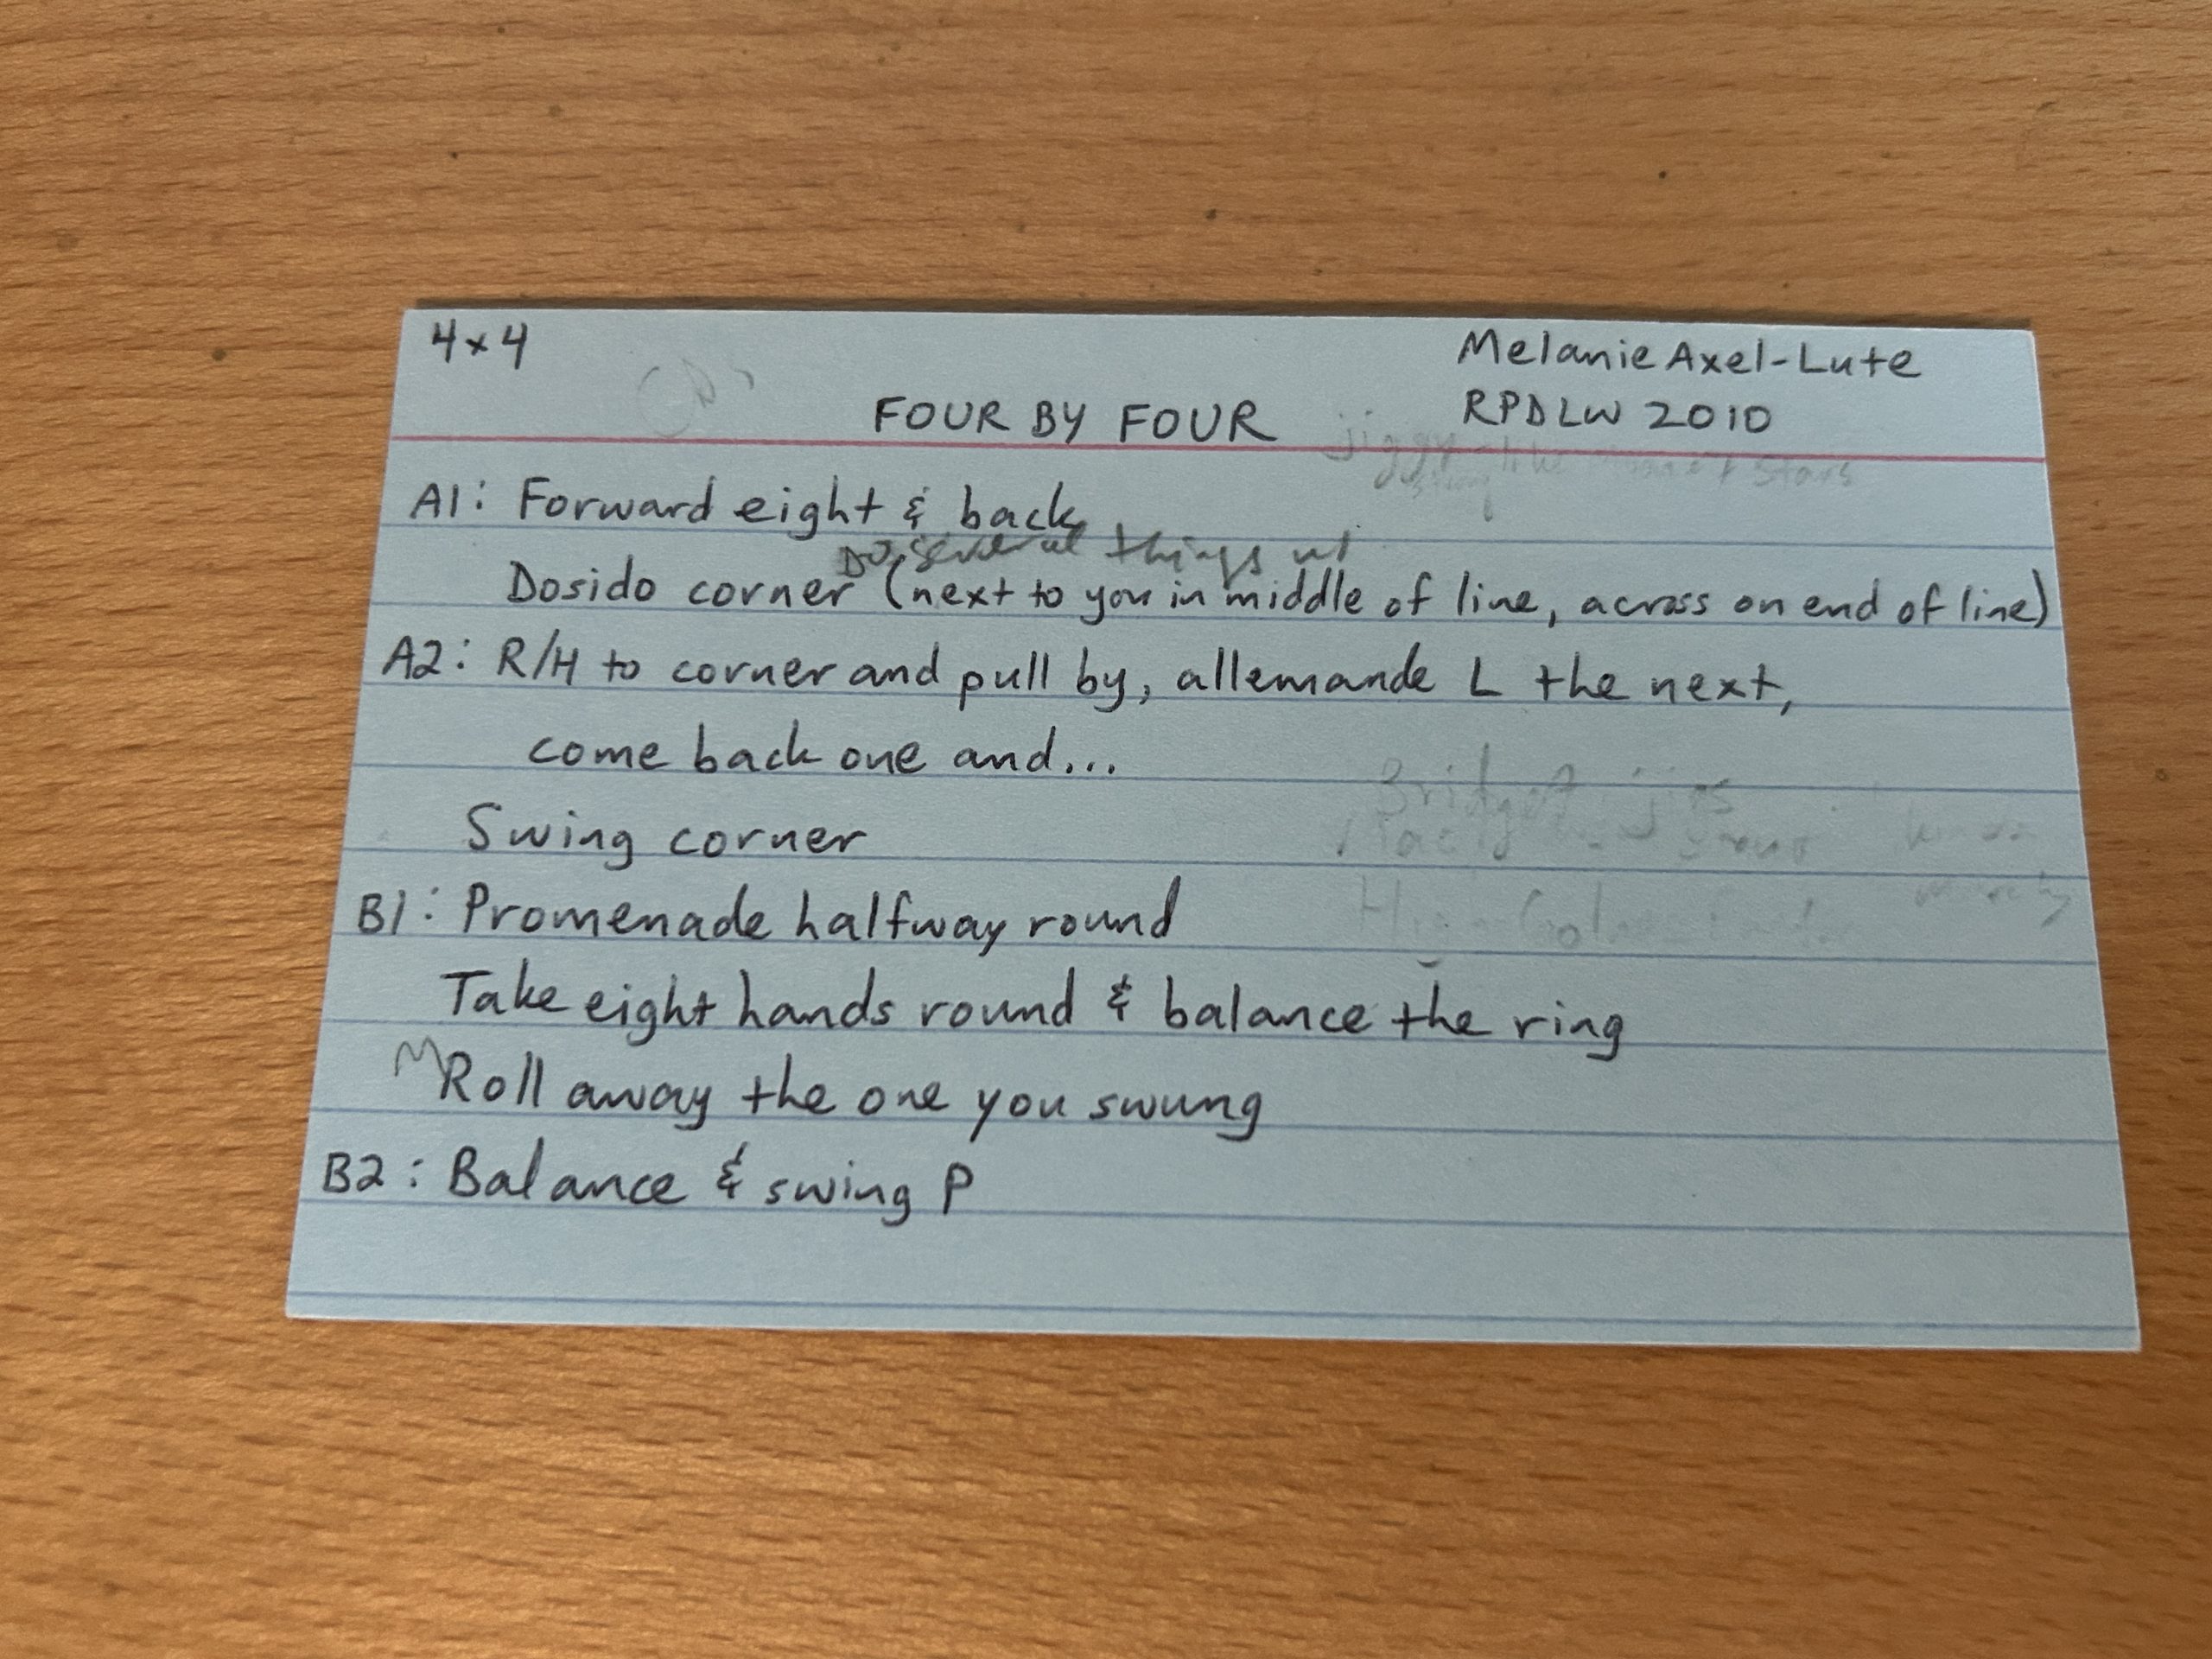 4x4
Melanie Axel-Lute
FOUR BY FOUR
RPDLW 2010
jiggy like Stars
A1: Forward eight & back
Do several things w/
Dosido corner (next to you in middle of line, across on end of line)
A2: R/H to corner and pull by, allemande L the next,
come back one and...
Swing corner
Bridget jigs
B1: Promenade halfway round
Take eight hands round & balance the ring
M Roll away the one you swung
B2: Balance & swing P